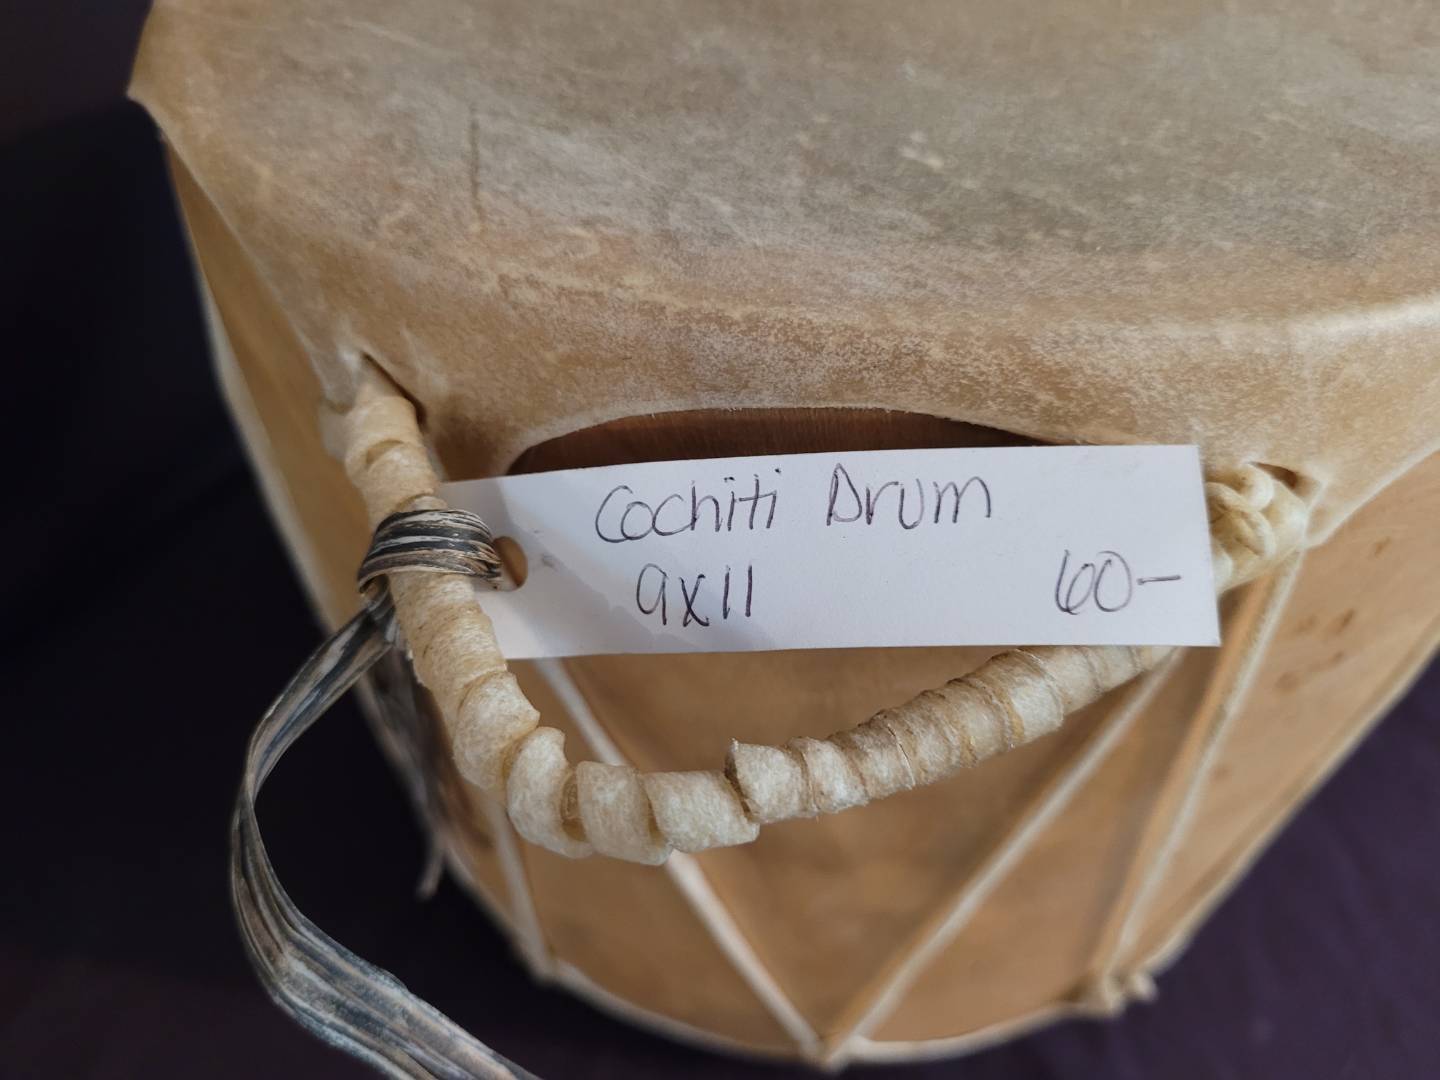 Cochiti Drum
9x11 60-